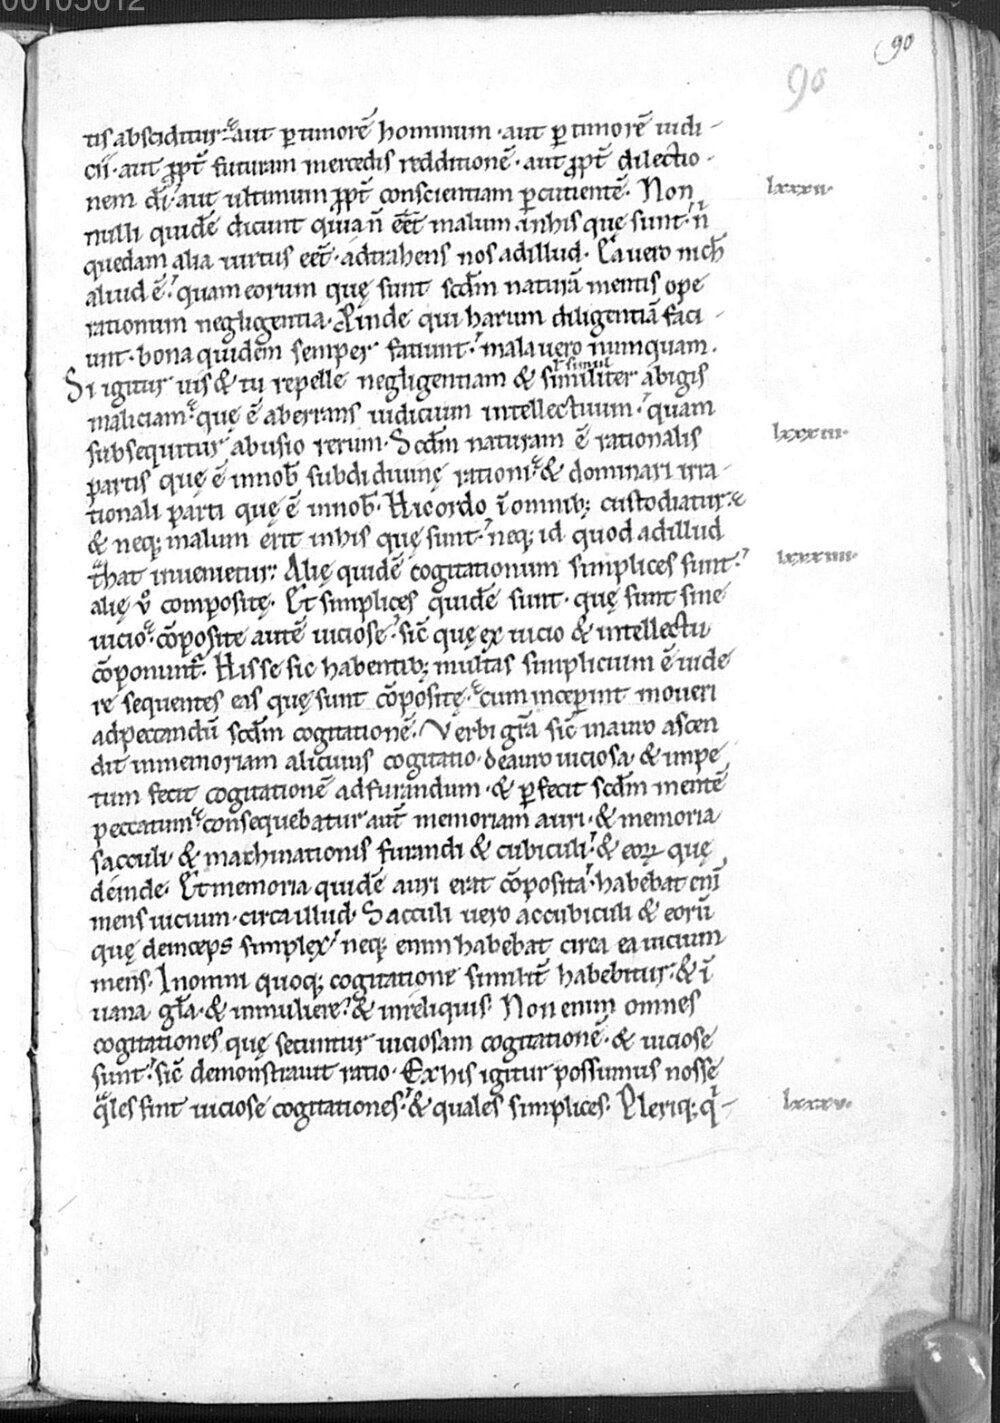 00105012
90
90
tis absciditur. aut ꝑ timorē hominum · aut ꝑ timorē iudi-
cii · aut ꝓpt̄ futuram mercedis redditionē · aut ꝓpt̄ dilectio-
nem dī · aut ultimum ꝓpt̄ conscientiam ꝑcutientē. Non
lxxxii·
nulli quidē dicunt quia n̄ eēt malum inhis quę sunt · n̄
quedam alia uirtus eēt · adtrahens nos adillud · Ea uero nich
aliud ē · quam eorum quę sunt scdm̄ naturā mentis ope
rationum negligentia · Proinde qui harum diligentiā faci-
unt · bona quidem semper faciunt · mala uero numquam.
ł simul
Si igitur uis & tu repelle negligentiam & similiter abigis
maliciam · quę ē aberrans iudicium intellectuum · quam
subsequitur abusio rerum · Scdm̄ naturam ē rationalis
lxxxiii·
partis quę ē innob̄ subdi diuinę rationi · & dominari irra-
tionali parti quę ē innob̄ · Hic ordo ī omnib; custodiatur ·
& neq; malum erit inhis quę sunt · neq; id quod adillud
t̄hat inuenietur · Alię quidē cogitationum simplices sunt ·
lxxxiiii·
alię v̊ compositę. Et simplices quidē sunt · quę sunt sine
uicio · cōposite autē uiciose · sic̄ quę ex uicio & intellectu
cōponunt̄. His se sic habentib; multas simplicium ē uide
re sequentes eis quę sunt cōpositę · cum inceperint moueri
adpeccandū scdm̄ cogitationē. Verbi gr̄a sic̄ in auro ascen
dit inmemoriam alicuius cogitatio · deauro uiciosa · & impe
tum fecit cogitationē adfurandum · & ꝑfecit scdm̄ mentē
peccatum · consequebatur aut̄ memoriam auri · & memoria
sacculi · & machinationis furandi & cubiculi · & eoꝝ quę
deinde · Et memoria quidē auri erat cōposita · habebat eni
mens uicium · circa illud · Sacculi uero ac cubiculi & eorū
quę deinceps simplex · neq; enim habebat circa ea uicium
mens. In omni quoq; cogitatione similit̄ habebitur · & ī
uana gl̄a · & inmuliere · & inreliquis · Non enim omnes
cogitationes quę secuntur uiciosam cogitationē · & uiciose
sunt · sic̄ demonstrauit ratio · Ex his igitur possumus nosse
q̄les sint uiciose cogitationes · & quales simplices. Pleriq; q̄-
lxxxv·